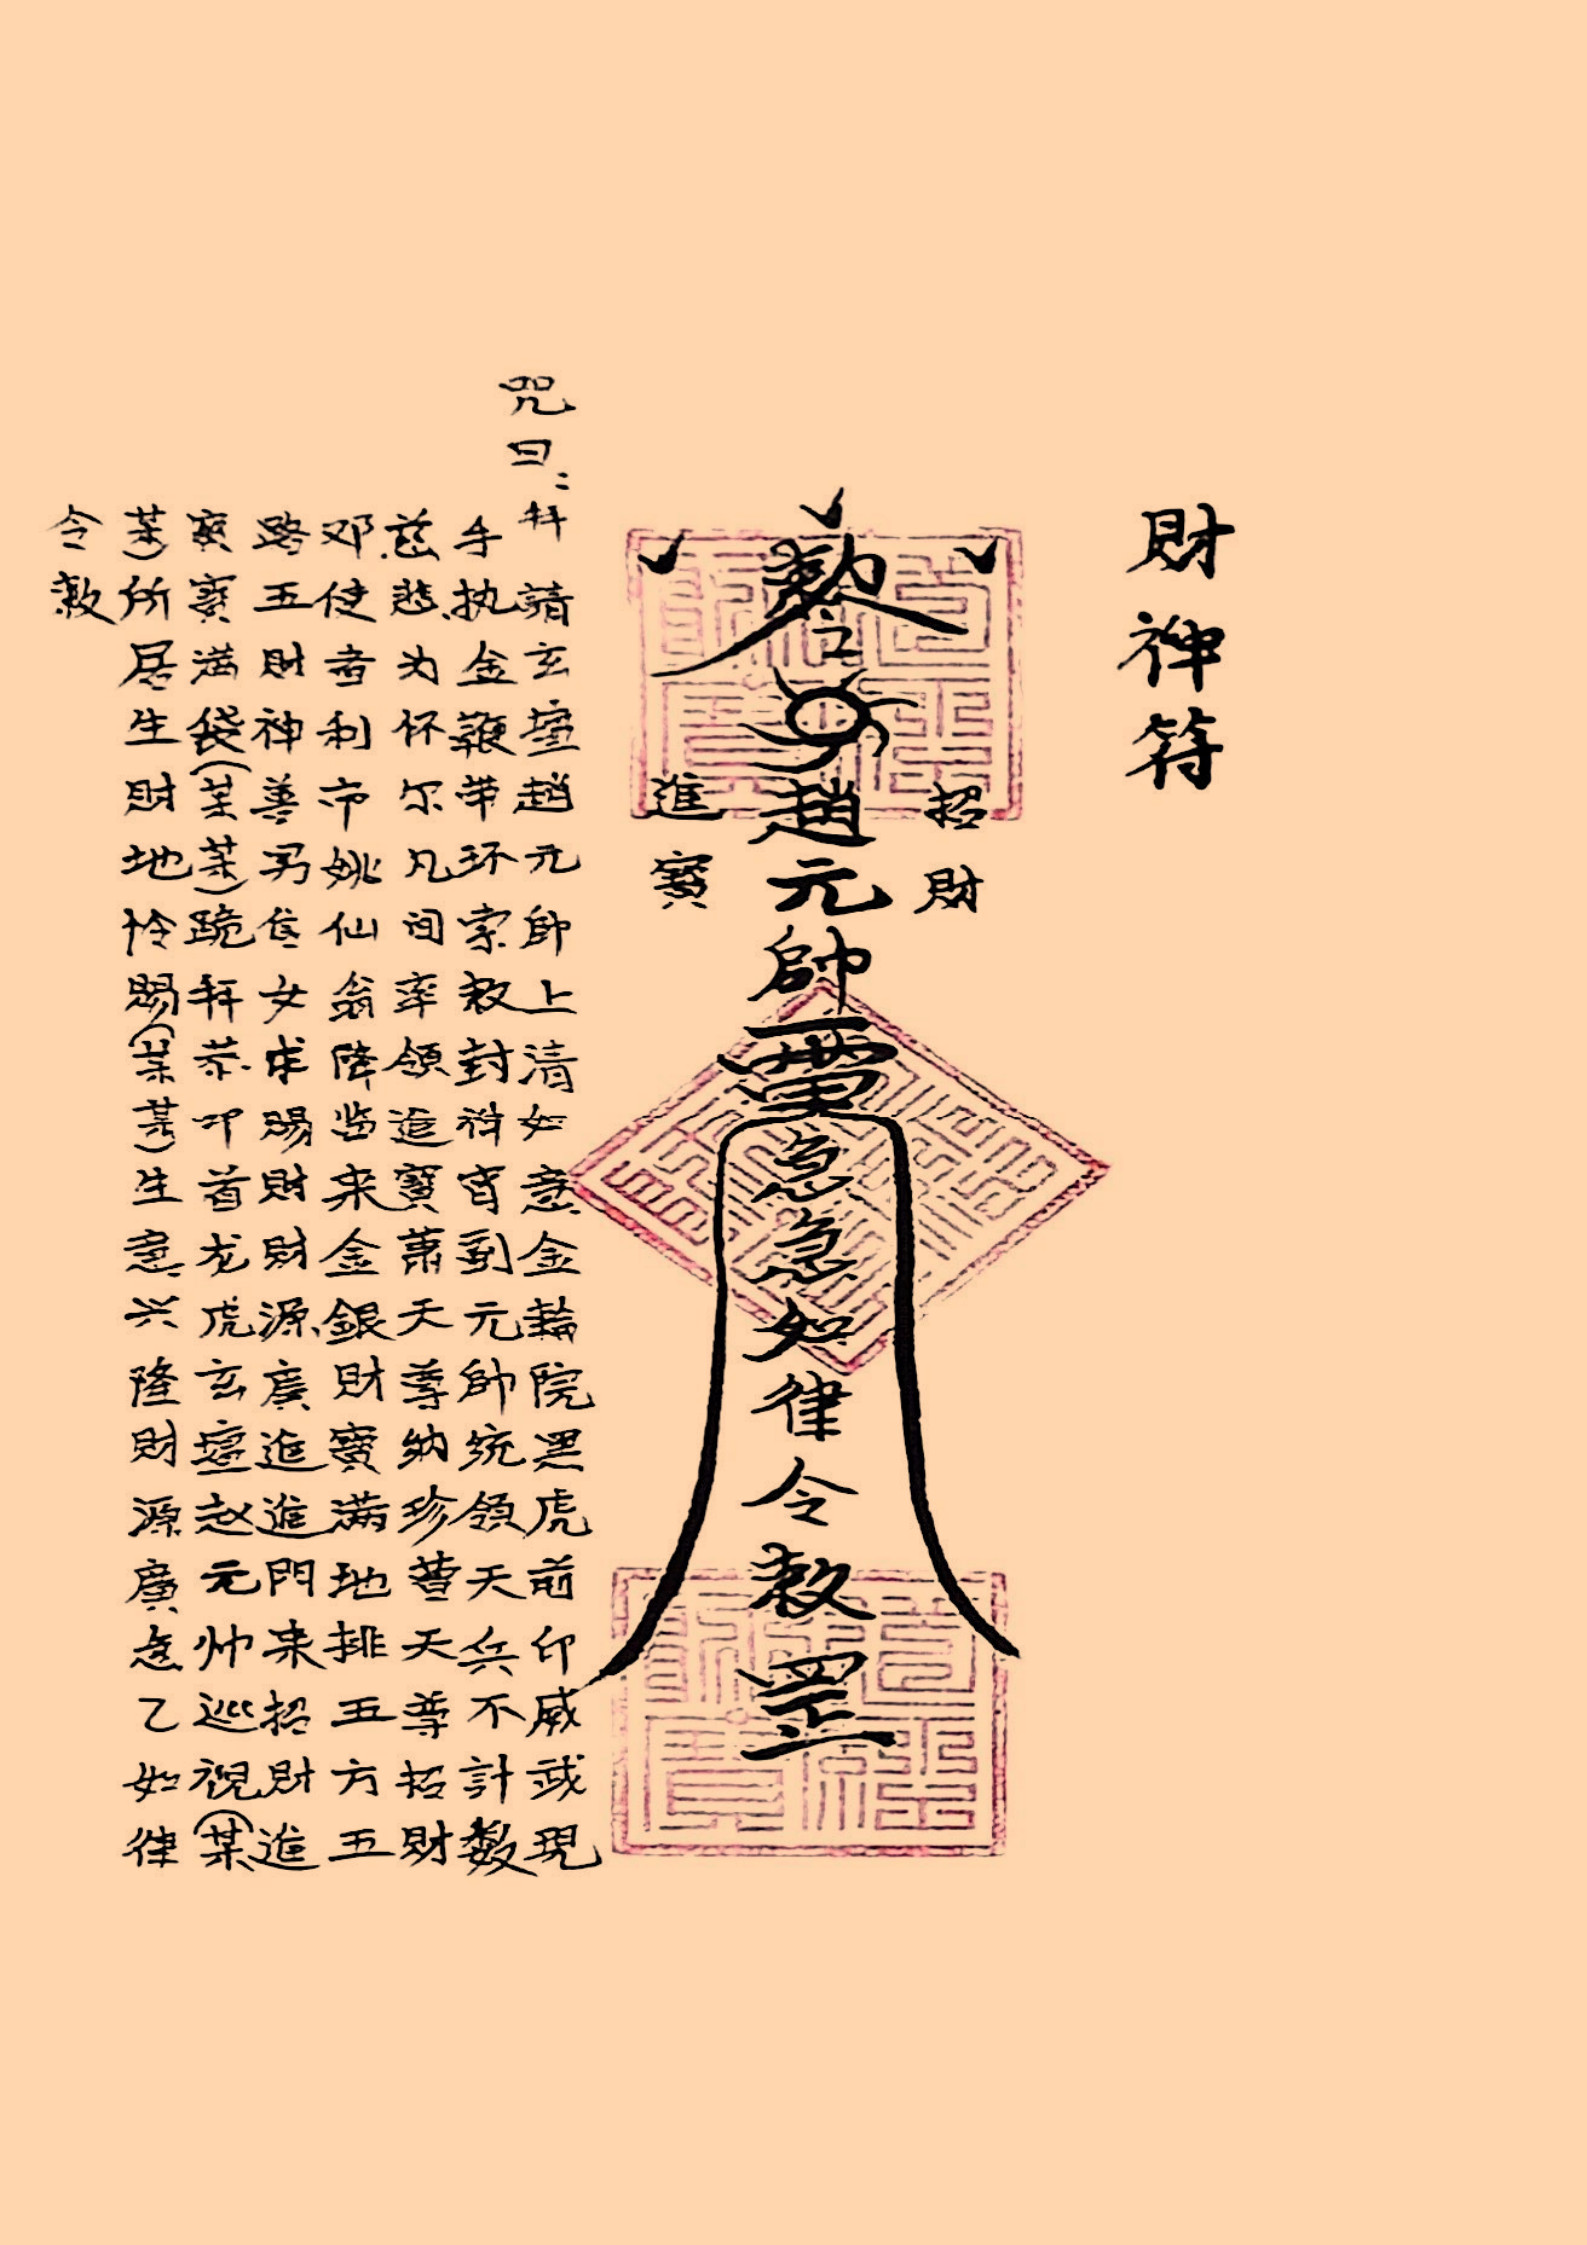 財神符
招財
敕令
趙元帥
急急如律令敕罡
進寶
咒曰:拜請玄壇趙元帥上清如意金輪院黑虎前卬威武現
手执金鞭带环索敕封祥宵到元帥统领天兵不計数
慈悲为怀尔凡间率領進寶蕭天尊納珍曹天尊招財
邓使者利市姚仙翁降临来金銀財寶满地排五方五
路五財神善男信女求賜財財源广進進門来招財進
寶寶满袋(某某)跪拜恭叩首龙虎玄壇赵元帅巡視(某
某)所居生財地怜賜(某某)生意兴隆財源廣急乙如律
令敕